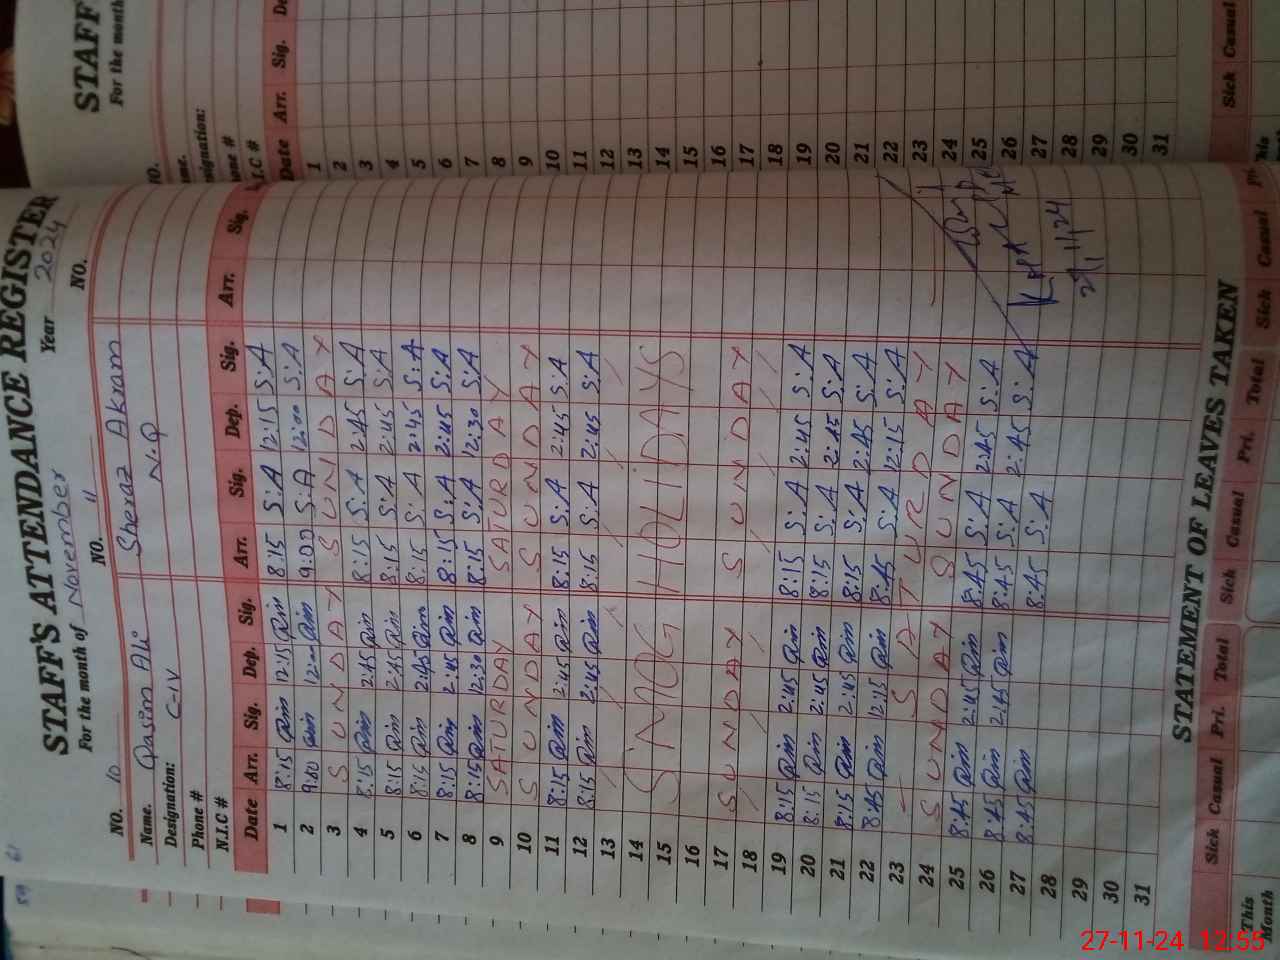 STAFF'S ATTENDANCE REGISTER
For the month of November Year 2024
NO. 10 NO. 11 NO.
Name. Qasim Ali Sheraz Akram
Designation: C-IV N.Q
Phone #
N.I.C #
Date Arr. Sig. Dep. Sig. Arr. Sig. Dep. Sig. Arr. Sig.
1 8:15 Qim 12:15 Qim 8:15 S.A 12:15 S.A
2 9:00 Qim 12:00 Qim 9:00 S.A 12:00 S.A
3 SUNDAY SUNDAY
4 8:15 Qim 2:45 Qim 8:15 S.A 2:45 S.A
5 8:15 Qim 2:45 Qim 8:15 S.A 2:45 S.A
6 8:15 Qim 2:45 Qim 8:15 S.A 2:45 S.A
7 8:15 Qim 2:45 Qim 8:15 S.A 2:45 S.A
8 8:15 Qim 12:30 Qim 8:15 S.A 12:30 S.A
9 SATURDAY SATURDAY
10 SUNDAY SUNDAY
11 8:15 Qim 2:45 Qim 8:15 S.A 2:45 S.A
12 8:15 Qim 2:45 Qim 8:15 S.A 2:45 S.A
13
14
15 SMOG HOLIDAYS
16
17 SUNDAY SUNDAY
18
19 8:15 Qim 2:45 Qim 8:15 S.A 2:45 S.A
20 8:15 Qim 2:45 Qim 8:15 S.A 2:45 S.A
21 8:15 Qim 2:45 Qim 8:15 S.A 2:45 S.A
22 8:45 Qim 12:15 Qim 8:45 S.A 12:15 S.A
23 SATURDAY
24 SUNDAY SUNDAY
25 8:45 Qim 2:45 Qim 8:45 S.A 2:45 S.A
26 8:45 Qim 2:45 Qim 8:45 S.A 2:45 S.A
27 8:45 Qim 8:45 S.A
28
29
30
31
27/11/24
STATEMENT OF LEAVES TAKEN
Sick Casual Pri. Total Sick Casual Pri. Total Sick Casual
This Month
STAFF
For the month
NO.
Date Arr. Sig.
1
2
3
4
5
6
7
8
9
10
11
12
13
14
15
16
17
18
19
20
21
22
23
24
25
26
27
28
29
30
31
Sick Casual
27-11-24 12:55